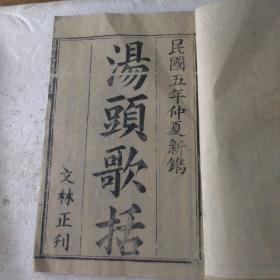 民國五年仲夏新鐫
湯頭歌括
文林正刊